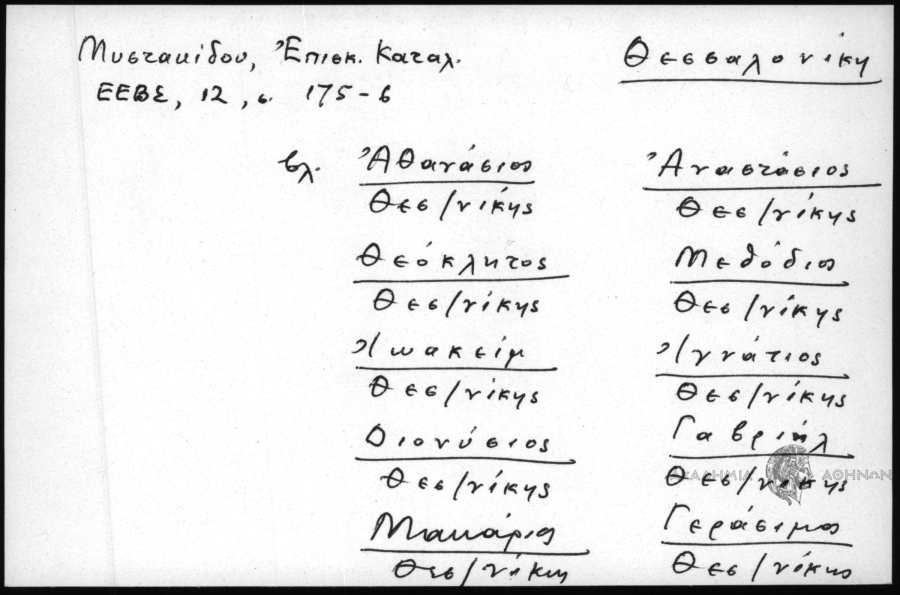 Μυστακίδου, Ἐπισκ. Καταλ.
ΕΕΒΣ, 12, σ. 175-6
Θεσσαλονίκη
βλ. Ἀθανάσιος
Θεσ/νίκης
Θεόκλητος
Θεσ/νίκης
Ἰωακείμ
Θεσ/νίκης
Διονύσιος
Θεσ/νίκης
Μακάριος
Θεσ/νίκης
Ἀναστάσιος
Θεσ/νίκης
Μεθόδιος
Θεσ/νίκης
Ἰγνάτιος
Θεσ/νίκης
Γαβριήλ
Θεσ/νίκης
Γεράσιμος
Θεσ/νίκης
ΑΚΑΔΗΜΙΑ ΑΘΗΝΩΝ